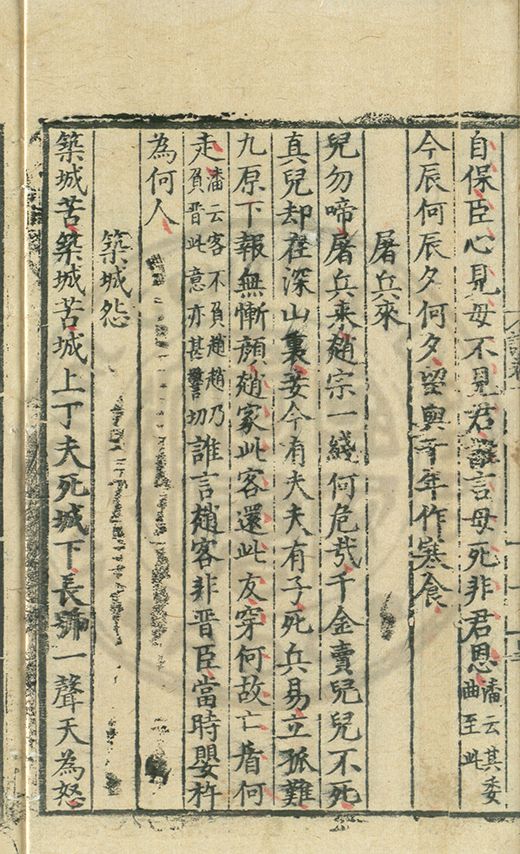 自保臣心見母不見君誰言母死非君恩潘云其委曲至此
今辰何辰夕何夕留與千年作寒食
屠兵來
兒勿啼屠兵來趙宗一綫何危哉千金賣兒兒不死
真兒却在深山裏妾今有夫夫有子死兵易立孤難
九原下報無慚顔趙家此客還此友穿何故亡盾何
走潘云客不負趙趙乃負晋此意亦甚警切誰言趙客非晋臣當時嬰杵
為何人
築城怨
築城苦築城苦城上丁夫死城下長號一聲天為怒